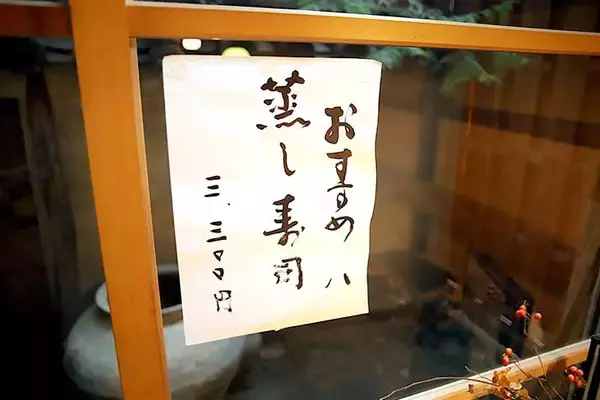 おすすめ ハ
蒸し寿司
三、三〇〇円